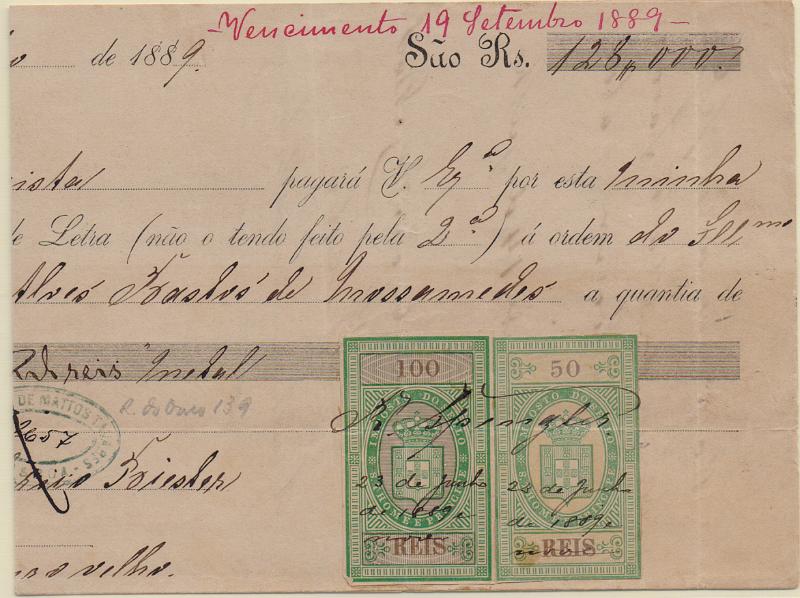 -Vencimento 19 Setembro 1889-
de 1889.
São Rs. 128$000.
ista pagará V. Exª por esta minha
de Letra (não o tendo feito pela 2ª) á ordem do Illmo
Alves Bastos de Mossamedes a quantia de
reis metal
100
50
DE MATTOS TAVARES
R. do Ouro 139
2657
IMPOSTO DO SELLO
S. THOMÉ E PRINCIPE
IMPOSTO DO SELLO
23 de Junho
de 1889.
23 de Junho
de 1889.
REIS
REIS
velho.